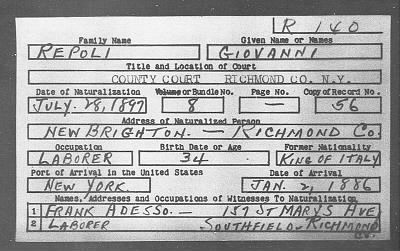 R 140
Family Name Given Name or Names
REPOLI GIOVANNI
Title and Location of Court
COUNTY COURT RICHMOND CO. N.Y.
Date of Naturalization Volume or Bundle No. Page No. Copy of Record No.
JULY. 28, 1897 8 — 56
Address of Naturalized Person
NEW BRIGHTON. — RICHMOND Co.
Occupation Birth Date or Age Former Nationality
LABORER 34 KING OF ITALY
Port of Arrival in the United States Date of Arrival
NEW YORK. JAN. 2, 1886
Names, Addresses and Occupations of Witnesses To Naturalization
1 FRANK ADESSO. — 157 ST MARYS AVE
2 LABORER SOUTHFIELD - RICHMOND
Co.